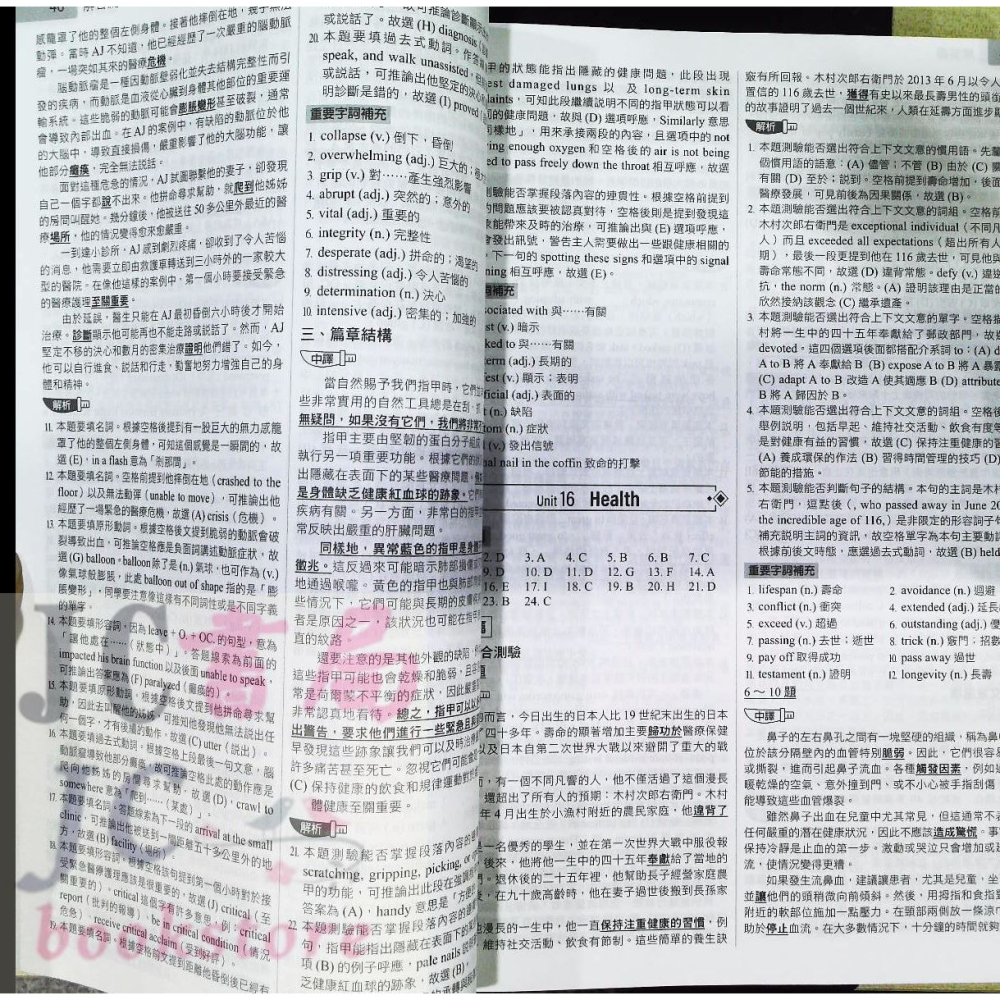 感籠罩了他的整個左側身體。接著他摔倒在地，幾乎無法
動彈。當時 AJ 不知道，他已經經歷了一次嚴重的腦動脈
瘤，一場突如其來的醫療危機。
腦動脈瘤是一種因動脈壁弱化並失去結構完整性而引
發的疾病，而動脈是血液從心臟到身體其他部位的重要運
輸系統。這些脆弱的動脈可能會膨脹變形甚至破裂，通常
會導致內部出血。在 AJ 的案例中，有缺陷的動脈位於他
的大腦中，導致直接損傷，嚴重影響了他的大腦功能，讓
他部分癱瘓，完全無法說話。
面對這種危急的情況，AJ 試圖聯繫他的妻子，卻發現
自己一個字都說不出來。他拼命尋求幫助，就爬到他姊姊
的房間叫醒她。幾分鐘後，他被送往 50 多公里外最近的醫
療場所，他的情況變得愈來愈嚴重。
一到達小診所，AJ 感到劇烈疼痛，卻收到了令人苦惱
的消息，他需要立即由救護車轉送到三小時外的一家較大
型的醫院。在像他這樣的案例中，第一個小時要接受緊急
的醫療護理至關重要。
由於延誤，醫生只能在 AJ 最初昏倒六小時後才開始
治療。診斷顯示他可能再也不能走路或說話了。然而，AJ
堅定不移的決心和數月的密集治療證明他們錯了。如今，
他可以自行進食、說話和行走，勤奮地努力增強自己的身
體和精神。
解析
11. 本題要填名詞。根據空格後提到有一股巨大的無力感籠
罩了他的整個左側身體，可知這個感覺是一瞬間的，故
選 (E)，in a flash 意為「剎那間」。
12. 本題要填名詞。空格前提到他摔倒在地 (crashed to the
floor) 以及無法動彈 (unable to move)，可推論出他
經歷了一場緊急的醫療危機，故選 (A) crisis（危機）。
13. 本題要填原形動詞。根據空格後文提到脆弱的動脈會破
裂導致出血，可推論空格應是負面詞講述動脈症狀，故
選 (G) balloon。balloon 除了是 (n.) 氣球，也可作為 (v.)
像氣球般膨脹，此處 balloon out of shape 指的是「膨
脹變形」，同學要注意像這樣有不同詞性或是不同字義
的單字。
14. 本題要填形容詞。因為 leave + O. + OC. 的句型，意為
「讓他處在……（狀態中）」。答題線索為前面的
impacted his brain function 以及後面 unable to speak，
可推論出答案應為 (F) paralyzed（癱瘓的）。
15. 本題要填原形動詞。根據空格後文提到他拼命尋求幫
助，因此去叫醒他的姊姊，可推知他發現他無法說出任
何一個字，才有後續的動作，故選 (C) utter（說出）。
16. 本題要填過去式動詞。根據空格上段最後一句文意，腦
動脈瘤導致他部分癱瘓，故可推論空格此處的動作應是
民向他姊姊的房間尋求幫助，故選 (D)，crawl to
somewhere 意為「爬到……（某處）」。
17. 本題要填名詞。答題線索為下一段的 arrival at the small
clinic，可推論出他被送到一間距離五十多公里外的地
方，故選 (B) facility（場所）。
18. 本題要填形容詞。根據空格該句提到第一個小時對於接
受緊急醫療護理應該是很重要的，故選 (J) critical（至
關重要的）。critical 這個字有許多意思，例：critical
report（批判的報導）、be in critical condition（情況
危急）、receive critical acclaim（受到好評）。
19. 本題要填名詞。根據空格前文提到距離他昏倒後已經有
或說話了。故選 (H) diagnosis
20. 本題要填過去式動詞。
speak, and walk unassisted
或說話，可推論出他堅定的決心
明診斷是錯的，故選 (I) proved
重要字詞補充
1. collapse (v.) 倒下，昏倒
2. overwhelming (adj.) 巨大的；
3. grip (v.) 對……產生強烈影響
4. abrupt (adj.) 突然的；意外的
5. vital (adj.) 重要的
6. integrity (n.) 完整性
7. desperate (adj.) 拼命的；渴望的
8. distressing (adj.) 令人苦惱的
9. determination (n.) 決心
10. intensive (adj.) 密集的；加強的
三、篇章結構
中譯
當自然賜予我們指甲時，它們
些非常實用的自然工具總是在刮、抓
無疑問，如果沒有它們，我們將非常
指甲主要由堅韌的蛋白分子組成
執行另一項重要功能。根據它們的
出隱藏在表面下的某些醫療問題。
是身體缺乏健康紅血球的跡象。它們
疾病有關。另一方面，非常白的指甲
常反映出嚴重的肝臟問題。
同樣地，異常藍色的指甲是身體
徵兆。這反過來可能暗示肺部損傷
地通過喉嚨。黃色的指甲也與肺部
些情況下，它們可能與長期的皮膚
者是原因之一，該狀況也可能在指甲
直的紋路。
還要注意的是其他外觀的缺陷，
這些指甲可能也會乾燥和脆弱，且
常是荷爾蒙不平衡的症狀，因此嚴重
非常認真地看待。總之，指甲可以
出警告，要求他們進行一些緊急且
早發現這些跡象讓我們可以及時治療
許多痛苦甚至死亡。忽視它們可能會
(C) 保持健康的飲食和規律運動對於
體健康至關重要。
解析
21. 本題測驗能否掌握段落內容的
scratching, gripping, picking, or
甲的功能，可推論出此段在強調
答案為 (A)，handy 意思是「方便
22. 本題測驗能否掌握段落內容的連
句，指甲能指出隱藏在表面下的
項 (B) 的例子呼應，pale nails
乏健康紅血球的跡象，故選 (B)
甲的狀態能指出隱藏的健康問題，此段出現
est damaged lungs 以 及 long-term skin
laints，可知此段繼續說明不同的指甲狀態可以看
的健康問題，故與 (D) 選項呼應，Similarly 意思
同樣地」，用來承接兩段的內容，且選項中的 not
ing enough oxygen 和空格後的 air is not being
ed to pass freely down the throat 相互呼應，故選
測驗能否掌握段落內容的連貫性。根據空格前提到
的問題應該要被認真對待，空格後則是提到發現這
象能帶來及時的治療，可推論出與 (E) 選項呼應，
會發出訊號，警告主人需要做出一些跟健康相關的
下一句的 spotting these signs 和選項中的 signal
ning 相互呼應，故選 (E)。
補充
ociated with 與……有關
st (v.) 暗示
ked to 與……有關
term (adj.) 長期的
est (v.) 顯示；表明
ficial (adj.) 表面的
t (n.) 缺陷
tom (n.) 症狀
(v.) 發出信號
nal nail in the coffin 致命的打擊
Unit 16 Health
2. D 3. A 4. C 5. B 6. B 7. C
9. D 10. D 11. D 12. G 13. F 14. A
16. E 17. I 18. C 19. B 20. H 21. D
23. B 24. C
合測驗
而言，今日出生的日本人比 19 世紀末出生的日本
四十多年。壽命的顯著增加主要歸功於醫療保健
以及日本自第二次世界大戰以來避開了重大的戰
，有一個不同凡響的人，他不僅活過了這個漫長
還超出了所有人的預期：木村次郎右衛門。木村
年 4 月出生於小漁村附近的農民家庭，他違背了
一名優秀的學生，並在第一次世界大戰中服役報
後來，他將他一生中的四十五年奉獻給了當地的
。退休後的二十五年裡，他幫助長子經營家庭農
，在九十歲高齡時，他在妻子過世後搬到長孫家
漫長的一生中，他一直保持注重健康的習慣，例
維持社交活動、飲食有節制。這些簡單的養生訣
竅有所回報。木村次郎右衛門於 2013 年 6 月以令人
置信的 116 歲去世，獲得有史以來最長壽男性的頭銜
的故事證明了過去一個世紀來，人類在延壽方面進步
解析
1. 本題測驗能否選出符合上下文文意的慣用語。先
個慣用語的語意：(A) 儘管；不管 (B) 由於 (C)
有關 (D) 至於；說到。空格前提到壽命增加，後面
醫療發展，可見前後為因果關係，故選 (B)。
2. 本題測驗能否選出符合上下文文意的詞組。空格前
木村次郎右衛門是 exceptional individual（不同凡
人）而且 exceeded all expectations（超出所有人
期），最後一段更提到他在 116 歲去世，可見他與
壽命常態不同，故選 (D) 違背常態。defy (v.) 違
抗，the norm (n.) 常態。(A) 證明該理由是正當的
欣然接納該觀念 (C) 繼承遺產。
3. 本題測驗能否選出符合上下文文意的單字。空格描
村將一生中的四十五年奉獻給了郵政部門，故選
devoted，這四個選項後面都搭配介系詞 to：(A) d
A to B 將 A 奉獻給 B (B) expose A to B 將 A 暴露
(C) adapt A to B 改造 A 使其適應 B (D) attribute
B 將 A 歸因於 B。
4. 本題測驗能否選出符合上下文文意的詞組。空格後
舉例說明，包括早起、維持社交活動、飲食有度等
是對健康有益的習慣，故選 (C) 保持注重健康的習
(A) 養成環保的作法 (B) 習得時間管理的技巧 (D)
節能的措施。
5. 本題測驗能否判斷句子的結構。本句的主詞是木村
右衛門，逗點後（, who passed away in June 20
the incredible age of 116,）是非限定的形容詞子句
補充說明主詞的資訊，故空格單字為本句主要動詞
根據前後文時態，應選過去式動詞，故選 (B) held
重要字詞補充
1. lifespan (n.) 壽命 2. avoidance (n.) 迴避
3. conflict (n.) 衝突 4. extended (adj.) 延長
5. exceed (v.) 超過 6. outstanding (adj.) 優
7. passing (n.) 去世；逝世 8. trick (n.) 竅門；招數
9. pay off 取得成功 10. pass away 過世
11. testament (n.) 證明 12. longevity (n.) 長壽
6～10 題
中譯
鼻子的左右鼻孔之間有一塊堅硬的組織，稱為鼻中
位於該分隔壁內的血管特別脆弱。因此，它們很容易
或撕裂，進而引起鼻子流血。各種觸發因素，例如過
暖乾燥的空氣、意外撞到門、或不小心被手指刮傷
能導致這些血管爆裂。
雖然鼻子出血在兒童中尤其常見，但這通常不是
任何嚴重的潛在健康狀況，因此不應該造成驚慌。事
保持冷靜是止血的第一步。激動或哭泣只會增加或延
流，使情況變得更糟。
如果發生流鼻血，建議讓患者，尤其是兒童，坐
並讓他們的頭稍微向前傾斜。然後，用拇指和食指
附近的軟部位施加一點壓力。在頸部兩側放一條涼
助於停止血流。在大多數情況下，十分鐘的時間就夠
JC 書苑
bookstore